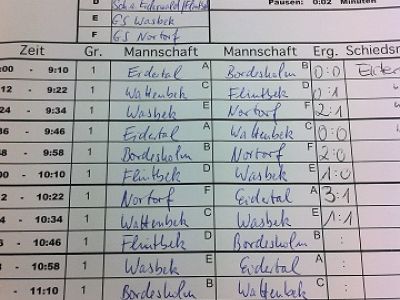 D Sch.a. Eiderwald/Flintbek Pausen: 0:02 Minuten
E GS Wasbek
F GS Nortorf
Zeit Gr. Mannschaft Mannschaft Erg. Schiedsr
:00 - 9:10 1 Eidertal A Bordesholm B 0:0 Eider
12 - 9:22 1 Wattenbek C Flintbek D 0:1
24 - 9:34 1 Wasbek E Nortorf F 2:1
36 - 9:46 1 Eidertal A Wattenbek C 0:0
48 - 9:58 1 Bordesholm B Nortorf F 2:0
00 - 10:10 1 Flintbek D Wasbek E 1:0
2 - 10:22 1 Nortorf F Eidertal A 3:1
4 - 10:34 1 Wattenbek C Wasbek E 1:1
6 - 10:46 1 Flintbek D Bordesholm B :
8 - 10:58 1 Wasbek E Eidertal A :
- 11:10 1 Bordesholm B Wattenbek C :